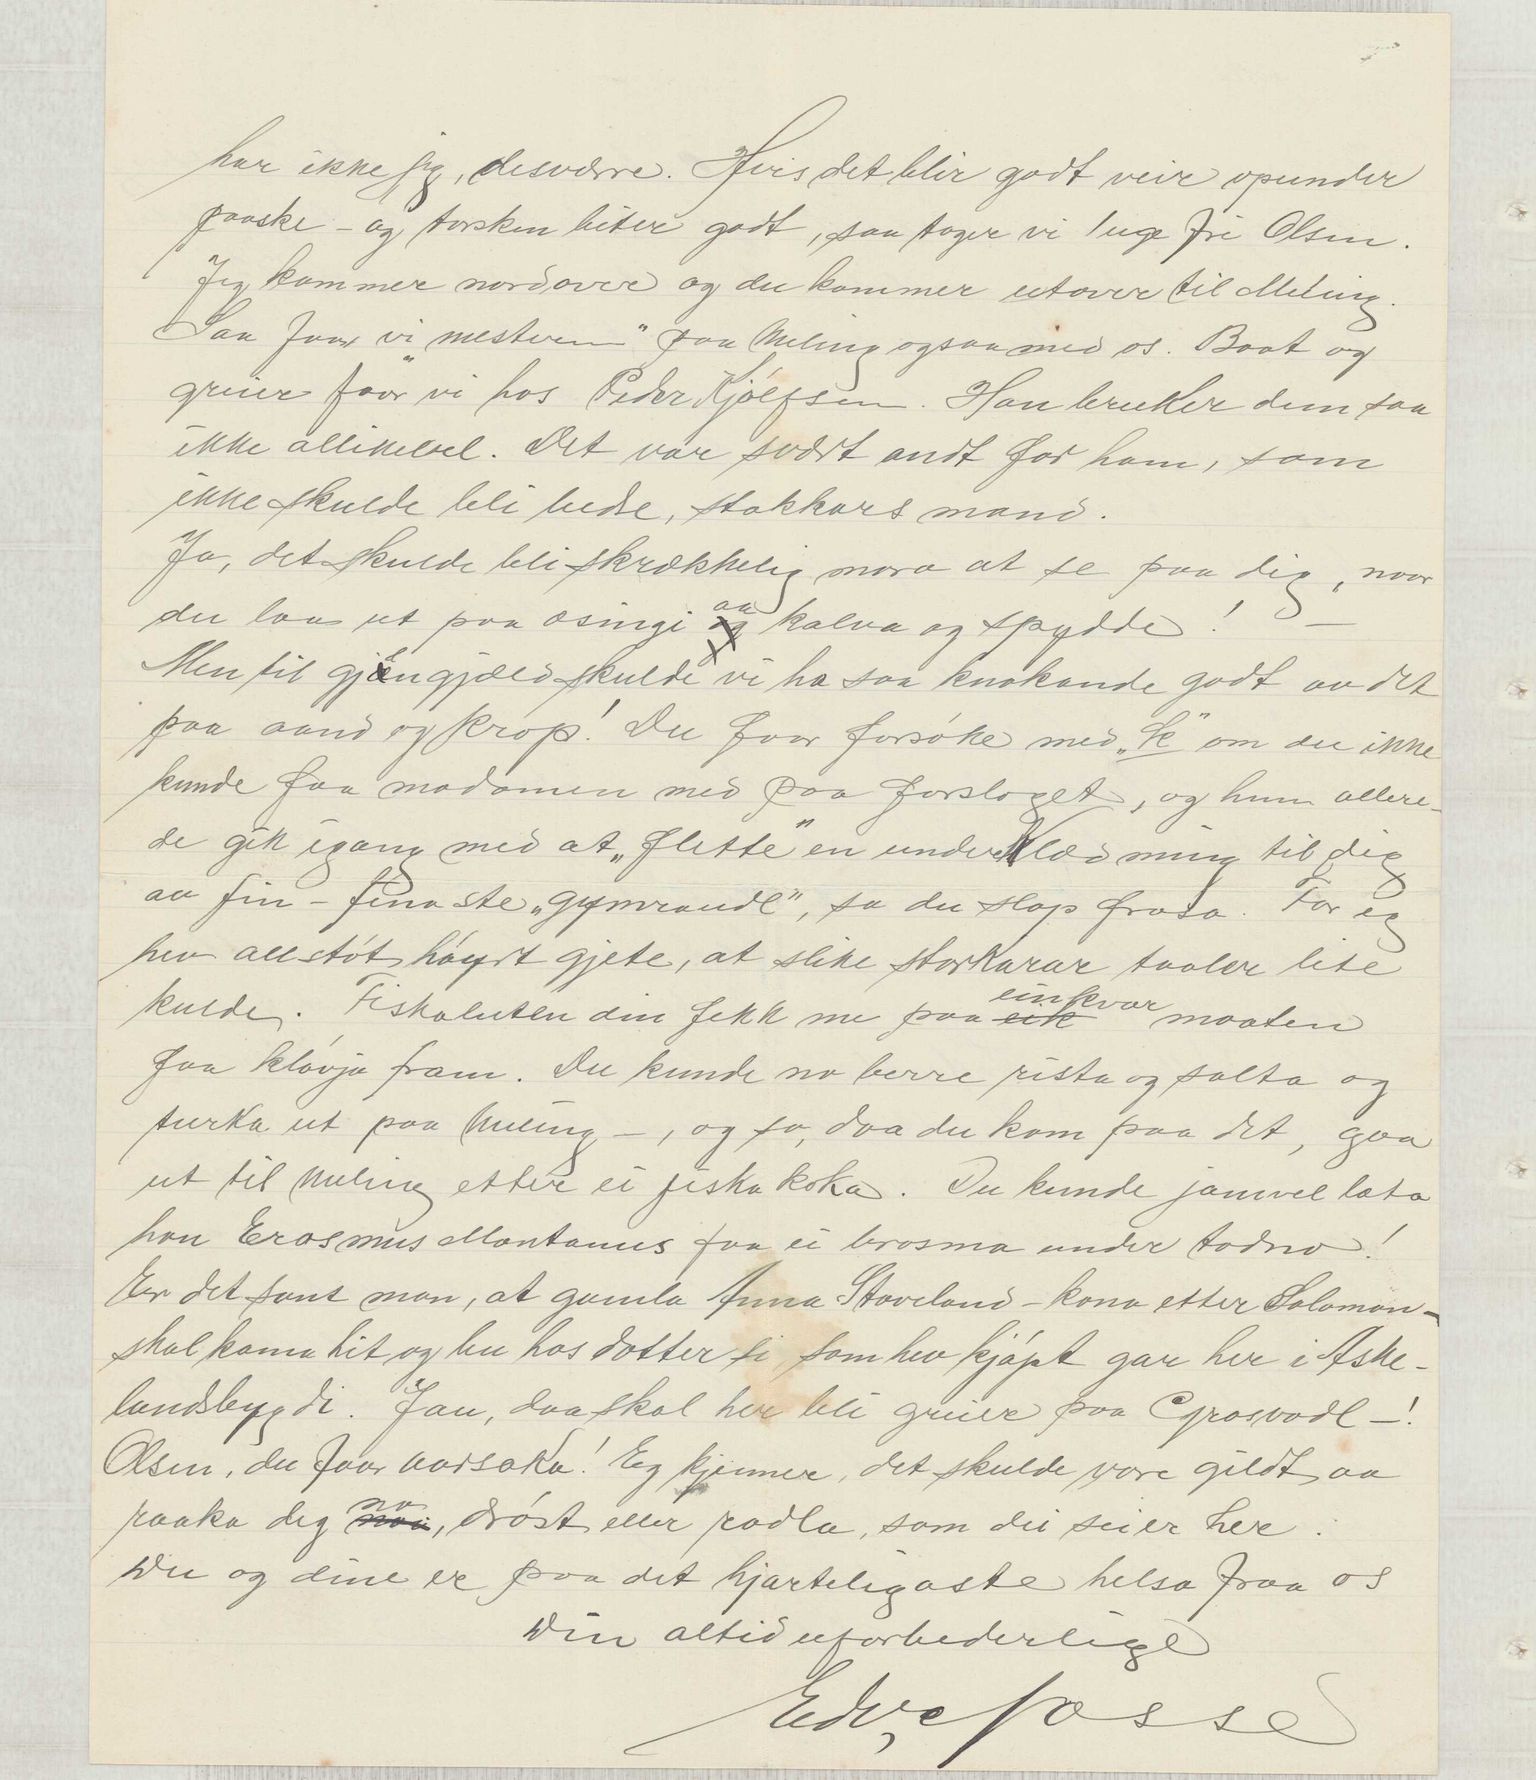 har ikke jeg, desværre. Hvis det blir godt veir opunder
paaske - og torsken biter godt, saa tager vi 1 uge fri Olsen.
Jeg kommer nordover og du kommer utover til Meling.
Saa faar vi „mesteren" paa Meling ogsaa med os. Baat og
greier faar vi hos Peder Kjølfsen. Han bruker dem saa
ikke allikevel. Det var svært ondt for ham, som
ikke skulde bli bedre, stakkars mand.
Ja, det skulde bli skrækkelig mora at se paa dig, naar
du laa ut paa osingi aa kalva og spydde! –
Men til gjengjæld skulde vi ha saa knakande godt av det
paa aand og krop! Du faar forsøke med „K" om du ikke
kunde faa madamen med paa forslaget, og hun allere-
de gik igang med at „flette" en underklædning til dig
av fin - finaste „gymraudl", so du slap frosa. For eg
hev allstøt høyrt gjete, at slike storkarar taaler lite
kulde. Fiskaluten din fekk me paa einkvar maaten
faa kløvja fram. Du kunde no berre rista og salta og
turka ut paa Meling –, og so, daa du kom paa det, gaa
ut til Meling etter ei fiska koka. Du kunde jamvel lata
han Erasmus Montanus faa ei brosma under todno!
Er det sant mon, at gamla Anna Staveland - kona etter Salomon -
skal koma hit og bu hos dotter si som hev kjøpt gar her i Aske-
landsbygdi. Jau, daa skal her bli greier paa Grasvodl –!
Olsen, du faar aarsaka! Eg kjenner, det skulde vore gildt aa
raaka deg no, drøst eller radla, som dei seier her.
Du og dine er paa det hjarteligaste helsa fraa os
Din altid uforbederlige
Edv. Fosse